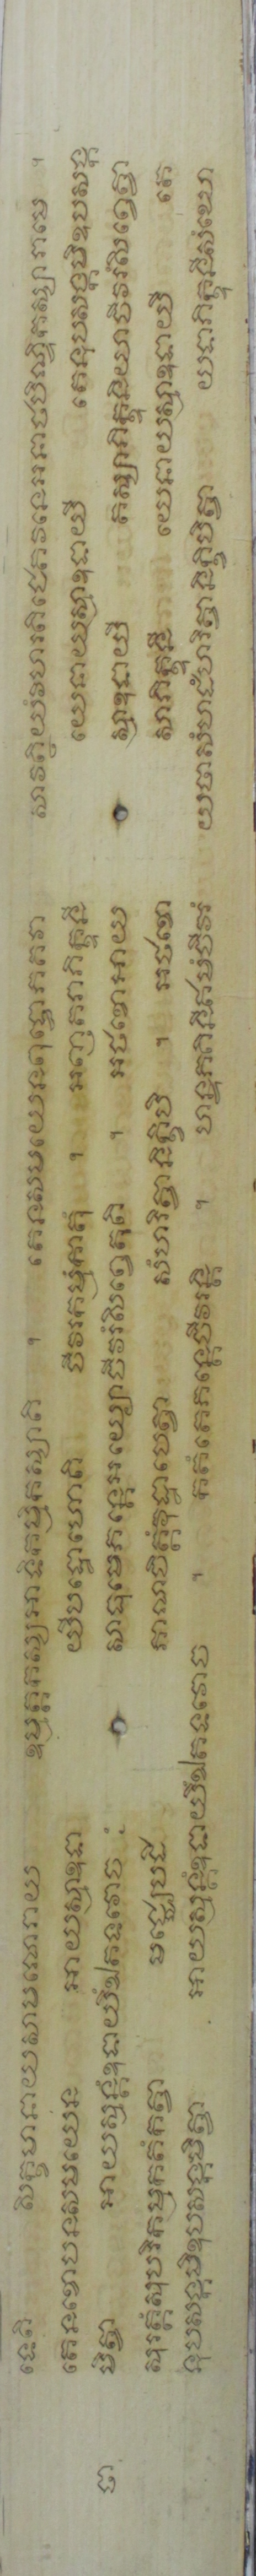 ទេតិ សិក្ខមានាយសាមណេរាយ ឧម្មត្តកស្សអាទិកម្មិកស្សាតិ ។ តេនសមយេនពុទ្ធោភគវា សាវត្ថិយំវិហរតិជេតវនេអនាថបិណ្ឌិកស្សារាមេ ។
តេនខោបនសមយេន អាយស្មាឧទា យីបដ្ឋោហោតិ ចីវរកម្មំកាតុំ ។ អញ្ញតរាភិក្ខុនី យេនាយស្មាឧទាយី តេនុបសង្កមិឧបសង្ក
ចា មិត្វា អាយស្មន្តំឧទាយិំឯតទវោច ៈ សាធុមេភន្តេអយ្យោចីវរំសិព្វេតូតិ ។ អថខោអាយ ស្មាឧទាយី តស្សាភិក្ខុនិយាចីវរំសិព្វេត្វា
សុរត្តំសុបរិកម្មកតំកត្វា មជ្ឈេបដិ ភាណចិត្តំវុដ្ឋាបេត្វា សំហរិត្វានិក្ខិបិ ។ អថខោ សាភិក្ខុនី យេនាយស្មាឧទាយី តេ
នុបសង្កមិឧបសង្កមិត្វា អាយស្មន្តំឧទាយិំឯតទវោច ។ កតំតេភន្តេចីវរន្តិ ។ ហន្ទភគិនីឥមំចីវរំ យថាសំហដំហរិត្វានិក្ខិបិត្វា យទាភិក្ខុនីសំឃោ